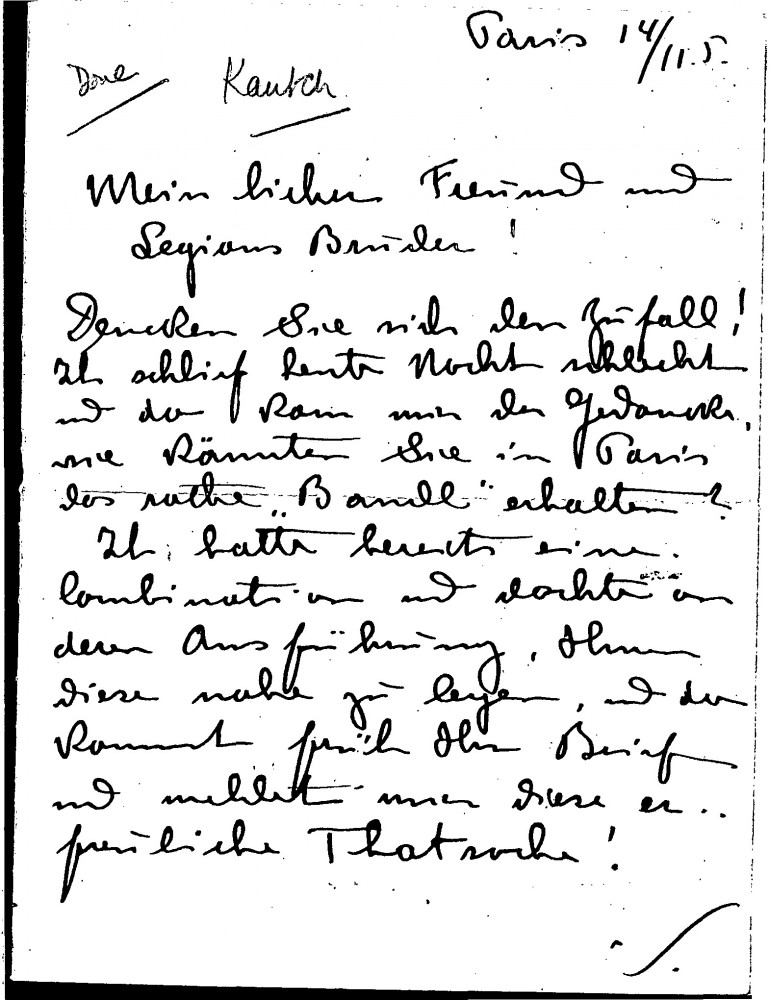 Paris 14/11.5.
Done Kautsch
Mein lieber Freund und
Legions Bruder!
Dencken Sie sich den Zufall!
Ich schlief heute Nacht schlecht
und da kam mir der Gedancke,
wie könnten Sie in Paris
das rothe „Bandl" erhalten?
Ich hatte bereits eine
Combination und dachte an
deren Ausführung, Ihnen
diese nahe zu legen, und da
kommt früh Ihr Brief
und meldet mir diese er..
freuliche Thatsache!